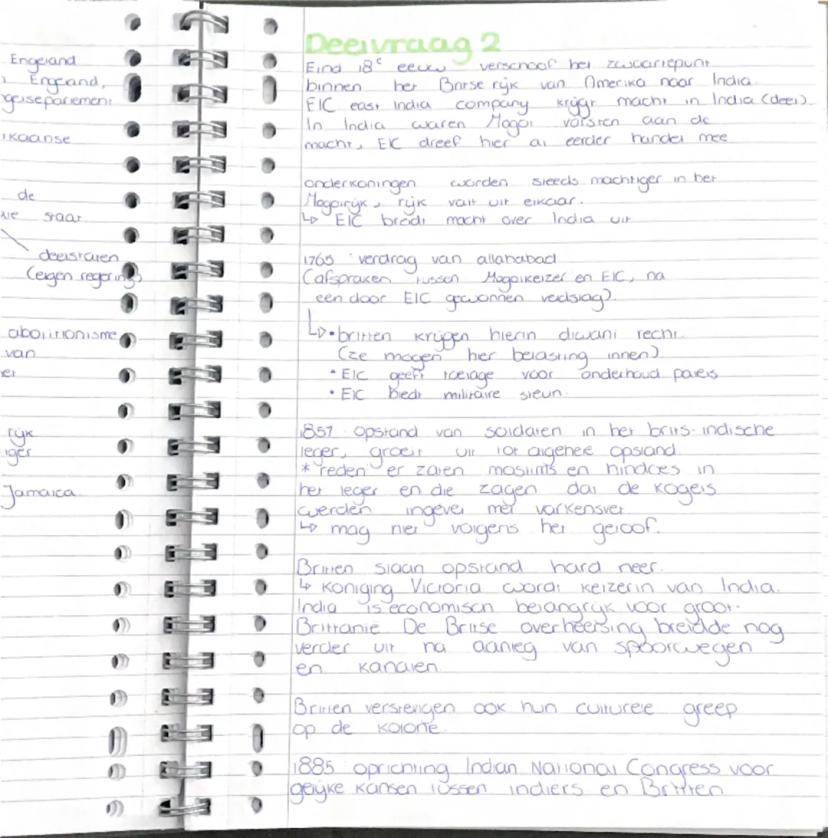 Engeland
Engeland,
ikaanse
de
staat
deelstaten
(eigen regering)
abolitionisme
van
rijk
Jamaica
Deelvraag 2
Eind 18e eeuw verschoof het zwaartepunt
binnen het Britse rijk van Amerika naar India.
EIC east India company krijgt macht in India (deel)
In India waren Mogol vorsten aan de
macht, EIC dreef hier al eerder handel mee
onderkoningen worden steeds machtiger in het
Mogolrijk, rijk valt uit elkaar.
↳ EIC breidt macht over India uit
1765 verdrag van allahabad
(afspraken tussen Mogolkeizer en EIC, na
een door EIC gewonnen veldslag).
↳ • britten krijgen hierin diwani recht.
(ze mogen hier belasting innen)
• EIC geeft toelage voor onderhoud paleis
• EIC biedt militaire steun.
1857 opstand van soldaten in het brits-indische
leger, groeit uit tot algehele opstand
* reden er zaten moslims en hindoes in
het leger en die zagen dat de kogels
werden ingevet met varkensvet
↳ mag niet volgens het geloof.
Britten slaan opstand hard neer.
↳ Koniging Victoria wordt keizerin van India.
India is economisch belangrijk voor groot-
Brittanie De Britse overheersing breidde nog
verder uit na aanleg van spoorwegen
en kanalen
Britten verstevigen ook hun culturele greep
op de kolonie.
1885 oprichting Indian National Congress voor
gelijke kansen tussen indiers en Britten